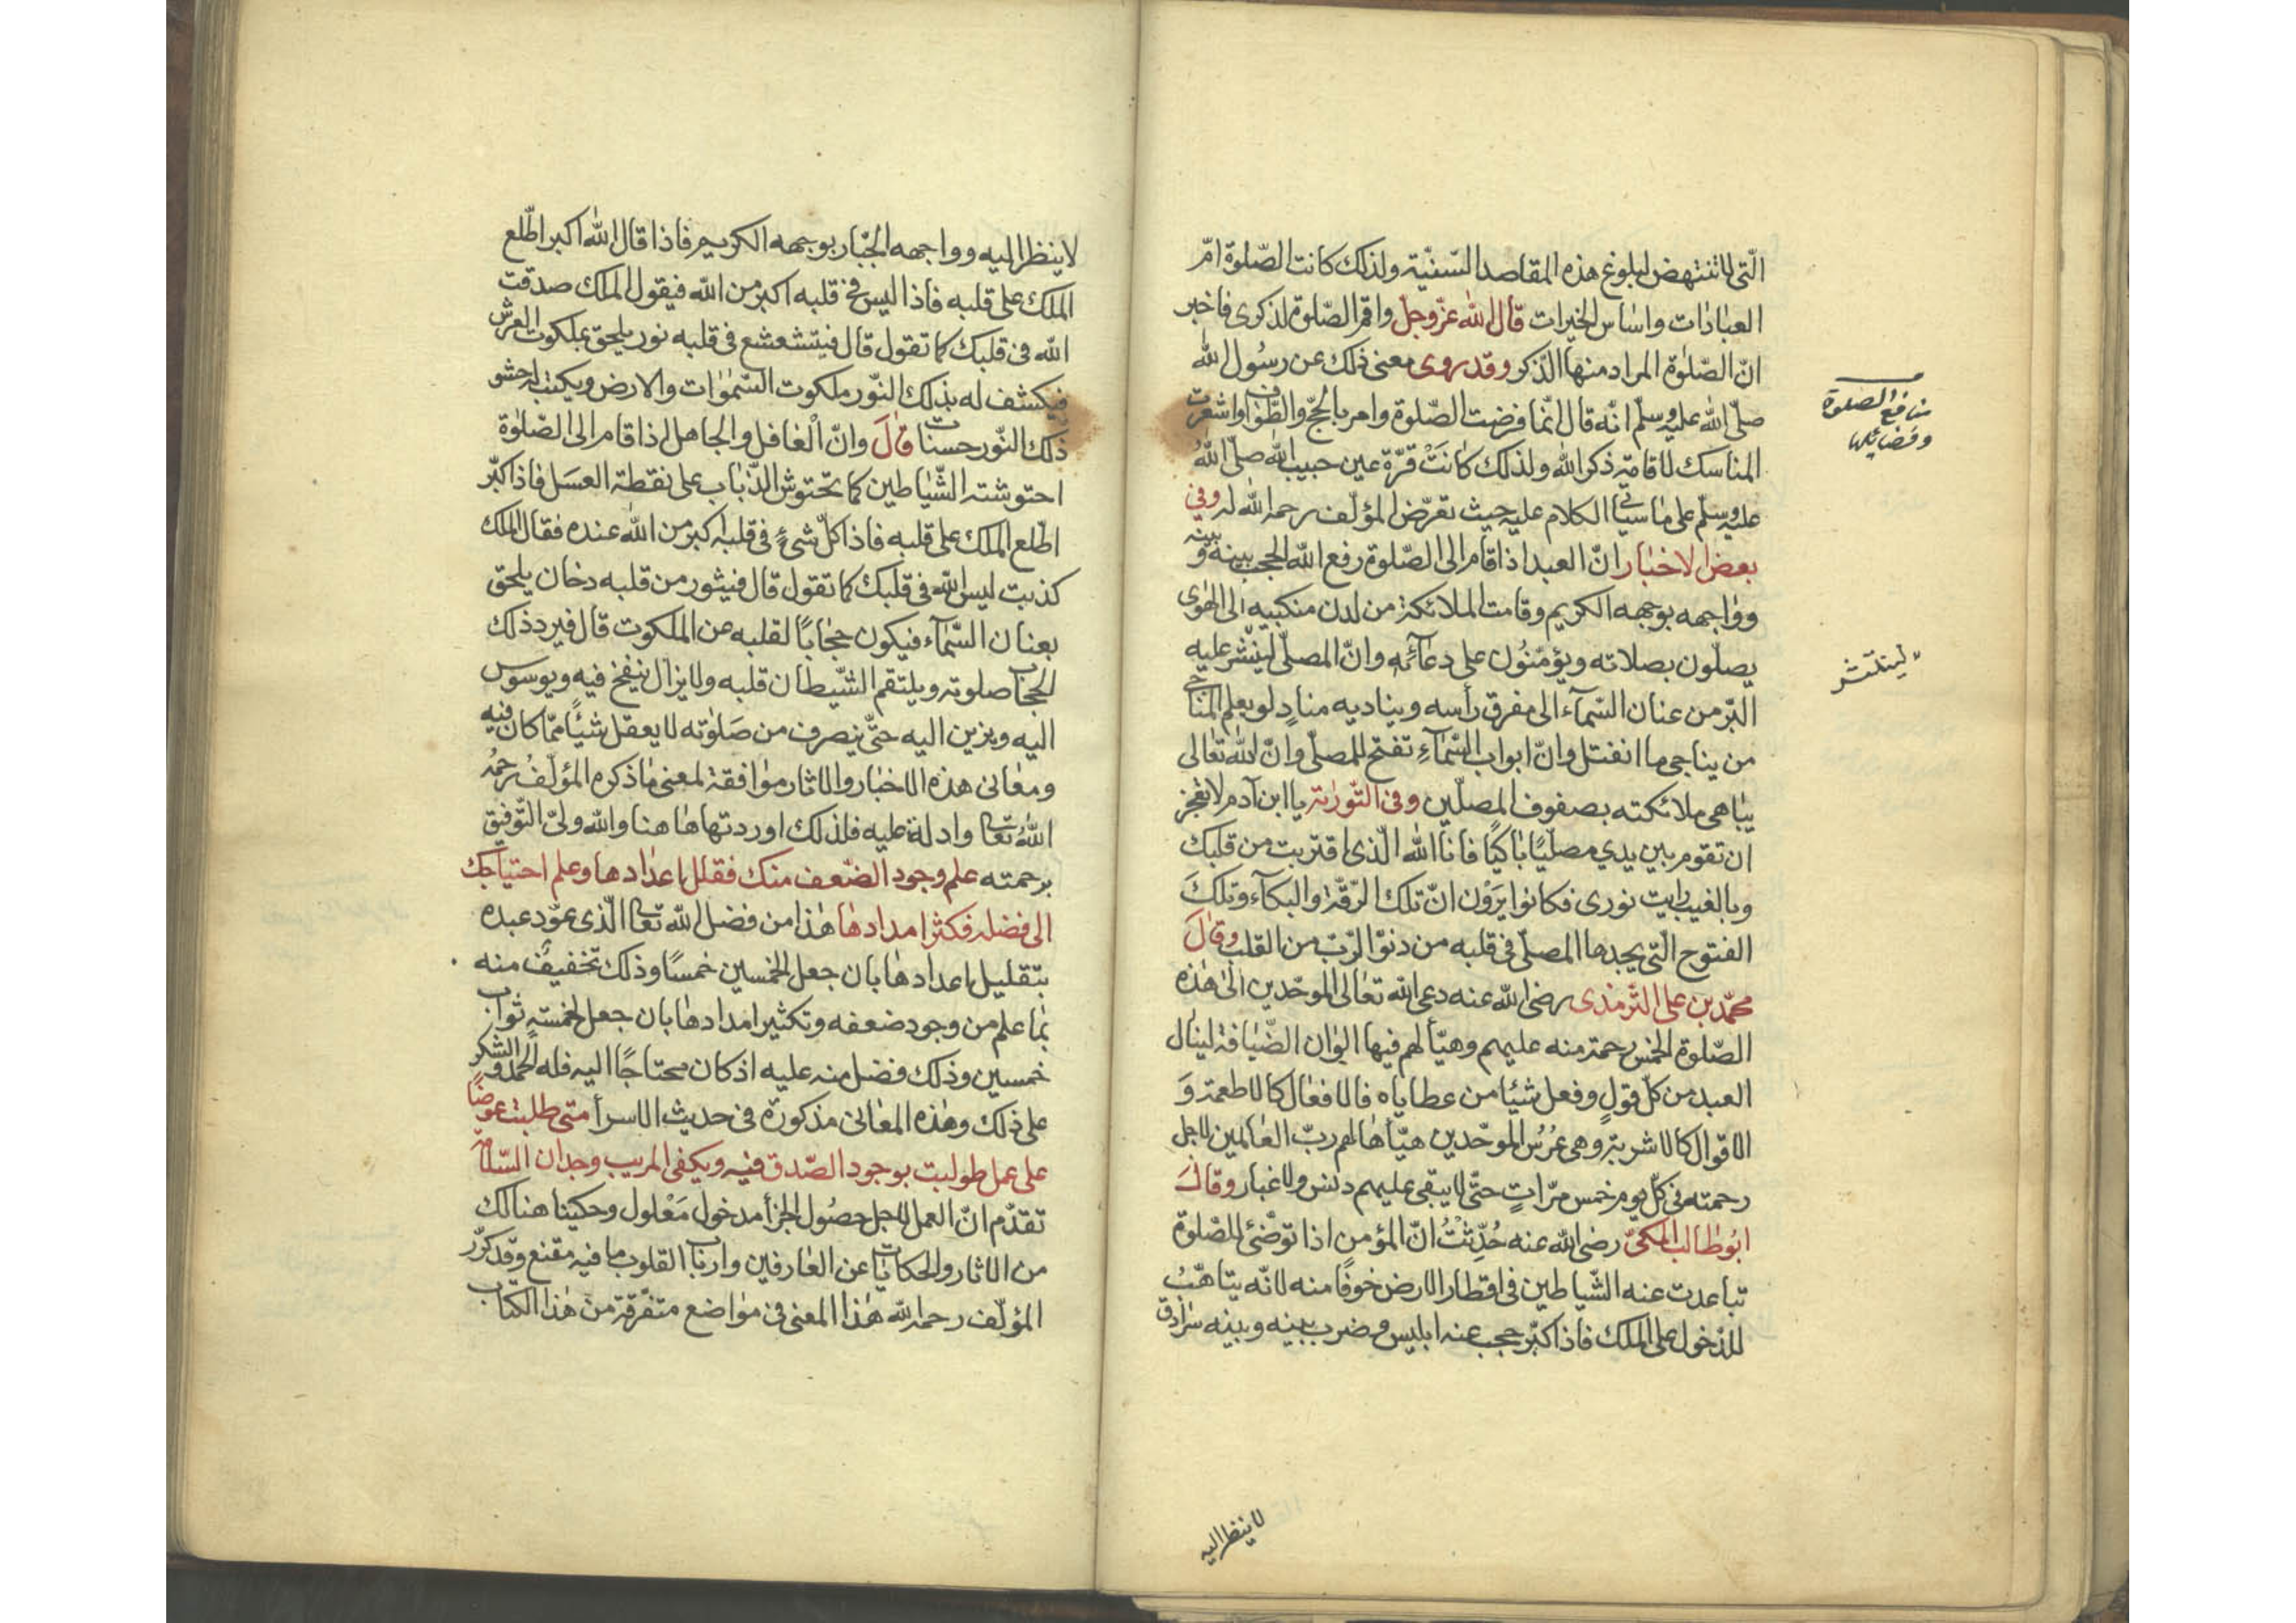 الّتى لا تنتهض لبلوغ هذه المقاصد السّنيّة ولذلك كانت الصّلوة امّ
العبادات واساس الخيرات قال الله عزّ وجلّ واقم الصّلوة لذكرى فاخبر
انّ الصّلوة المراد منها الذّكر وقد روى معنى ذلك عن رسول الله
صلّى الله عليه وسلّم انّه قال انّما فرضت الصّلوة وامر بالحجّ والطّواف واشعرت
المناسك لاقامة ذكر الله ولذلك كانَتْ قرّة عين حبيب الله صلّى اللهُ
عليه وسلّم على ما سيأتى الكلام عليه حيث تعرّض المؤلّف رحمه الله له وفى
بعض الاخبار انّ العبد اذا قام الى الصّلوة رفع الله الحجب بينه وبينه
وواجهه بوجهه الكريم وقامت الملائكة من لدن منكبيه الى الهوى
يصلّون بصلاته ويؤمّنُون على دعائه وانّ المصلّى لينثر عليه
البّر من عنان السّمآء الى مفرق رأسه ويناديه منادٍ لو يعلم المناجى
من يناجى ما انفتل وانّ ابواب السّمآءِ تفتح للمصلّى وانّ الله تعالى
يباهى ملائكته بصفوف المصلّين وفى التّورية يا ابن آدم لا تعجز
ان تقوم بين يدي مصلّيًا باكيًا فانا الله الّذى اقتربت من قلبك
وبالغيب رايت نورى فكانوا يَرَوْن انّ تلك الرّقّة والبكآء وتلكَ
الفتوح الّتى يجدها المصلّى فى قلبه من دنوّ الرّبّ من القلب وقالَ
محمّد بن على التّرمذى رضى الله عنه دعى الله تعالى الموحّدين الى هذه
الصّلوة الخمس رحمة منه عليهم وهيّأ لهم فيها الوان الضّيافة لينال
العبد من كلّ قولٍ وفعل شيئا من عطاياه فالافعال كالاطعمة وَ
الاقوال كالاشربة وهى عُرُسُ الموحّدين هيّأها لهم ربّ العالمين لاجل
رحمته فى كلّ يوم خمس مرّاتٍ حتّى لا يبقى عليهم دنس ولا غبار وقالَ
ابُو طالب المكىّ رضى الله عنه حُدِّثْتُ انّ المؤمن اذا توضّئ للصّلوة
تباعدت عنه الشّياطين فى اقطار الارض خوفًا منه لانّه يتاهّبُ
للدّخول على الملك فاذا كبّر حجب عنه ابليس وضرب بينه وبينه سرادق
منافع الصلوة
وفضائلها
لينتثر
لا ينظر اليه
لا ينظر اليه وواجهه الجبّار بوجهه الكريم فاذا قال الله اكبر اطّلع
الملك على قلبه فاذا ليس فى قلبه اكبر من الله فيقول الملك صدقت
الله فى قلبك كما تقول قال فيتشعشع فى قلبه نور يلحق بملكوت العرش
فيكشف له بذلك النّور ملكوت السّموات والارض ويكتب له حشو
ذلك النّور حسنات قالَ وانّ الْغافل والجاهل اذا قام الى الصّلوة
احتوشته الشّياطين كما تحتوش الذّباب على نقطة العسَل فاذا كبّر
اطّلع الملك على قلبه فاذا كلّ شىءٍ فى قلبه اكبر من الله عنده فقال الملك
كذبت ليس الله فى قلبك كما تقول قال فيثور من قلبه دخان يلحق
بعنان السّمآء فيكون حجابًا لقلبه عن الملكوت قال فيردّ ذلك
الحجاب صلوته ويلتقم الشّيطان قلبه ولا يزال ينفخ فيه ويوسوس
اليه ويزين اليه حتّى ينصرف من صَلوته لا يعقل شيئًا ممّا كان فيه
ومعانى هذه الاخبار والاثار موافقة لمعنى ما ذكره المؤلّفُ رحمهُ
اللهُ تعالى وادلة عليه فلذلك اوردتها هاهنا والله ولىّ التّوفيق
برحمته علم وجود الضّعف منك فقلل اعدادها وعلم احتياجك
الى فضله فكثر امدادها هذا من فضل الله تعالى الّذى عوّد عبده
بتقليل اعدادها بان جعل الخمسين خمسًا وذلك تخفيفٌ منه
بما علم من وجود ضعفه وتكثير امدادها بان جعل لخمسةٍ ثواب
خمسين وذلك فضل منه عليه اذ كان محتاجًا اليه فله الحمد والشكر
على ذلك وهذه المعانى مذكورة فى حديث الاسرأ متى طلبت عوضًا
على عمل طولبت بوجود الصّدق فيه ويكفى المريب وجدان السّلامة
تقدّم انّ العمل لاجل حصُول الجزأ مدخول مَعْلول وحكينا هنالك
من الاثار والحكايات عن العارفين وارباب القلوب ما فيه مقنع وقد كرّر
المؤلّف رحمه الله هذا المعنى فى مواضع متفرّقة من هذا الكتاب